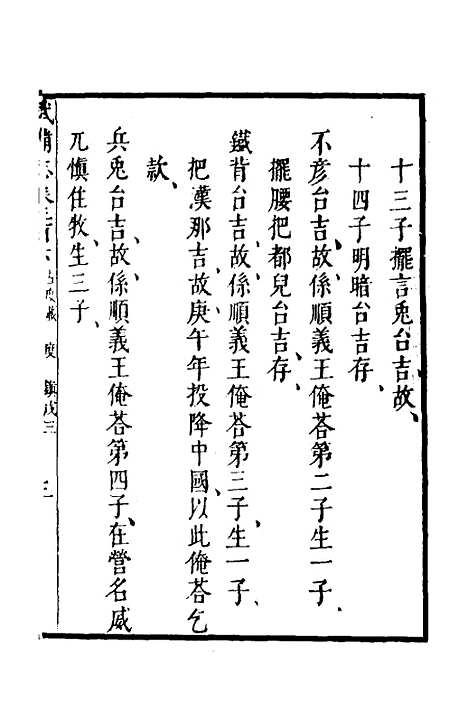 十三子擺言兎台吉故、
十四子明暗台吉存、
不彥台吉故、係順義王俺荅第二子、生一子、
擺腰把都兒台吉存、
鐵背台吉故、係順義王俺荅第三子、生一子、
把漢那吉故、庚午年投降中國、以此俺荅乞
款、
兵兎台吉故、係順義王俺荅第四子、在營名威
兀愼住牧、生三子、
武備志卷二百六 占度載 度 鎭戍三 三